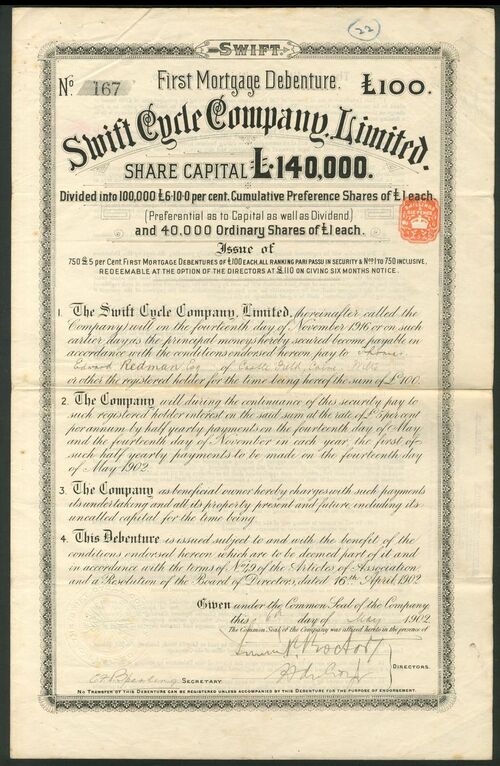 22
SWIFT.
No. 167 First Mortgage Debenture. £100.
Swift Cycle Company, Limited.
SHARE CAPITAL £140,000.
Divided into 100,000 £6·10·0 per cent. Cumulative Preference Shares of £1 each.
(Preferential as to Capital as well as Dividend)
and 40,000 Ordinary Shares of £1 each.
Issue of
750 £5 per Cent. First Mortgage Debentures of £100 each, all ranking pari passu in security & Nos 1 to 750 inclusive,
redeemable at the option of the directors at £110 on giving six months notice.
1. The Swift Cycle Company, Limited, (hereinafter called the
Company) will on the fourteenth day of November 1916 or on such
earlier day as the principal moneys hereby secured become payable in
accordance with the conditions endorsed hereon pay to Thomas
Edward Redman Esq of Castle Field, Calne, Wilts
or other the registered holder for the time being hereof the sum of £100.
2. The Company will during the continuance of this security pay to
such registered holder interest on the said sum at the rate of £5 per cent
per annum by half yearly payments on the fourteenth day of May
and the fourteenth day of November in each year, the first of
such half yearly payments to be made on the fourteenth day
of May 1902
3. The Company as beneficial owner hereby charges with such payments
its undertaking and all its property present and future including its
uncalled capital for the time being.
4. This Debenture is issued subject to and with the benefit of the
conditions endorsed hereon which are to be deemed part of it and
in accordance with the terms of No. 79 of the Articles of Association
and a Resolution of the Board of Directors, dated 16th April, 1902
Given under the Common Seal of the Company
this 6th day of May 1902
The Common Seal of the Company was affixed hereto in the presence of
Proctor
DIRECTORS.
SECRETARY
No Transfer of this Debenture can be registered unless accompanied by this Debenture for the purpose of endorsement.